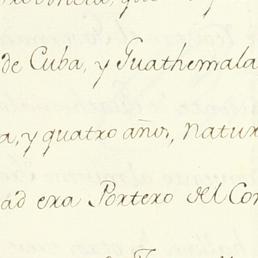 de Cuba, y Guathemala
a, y quatro años, natur
ad era Portero del Con